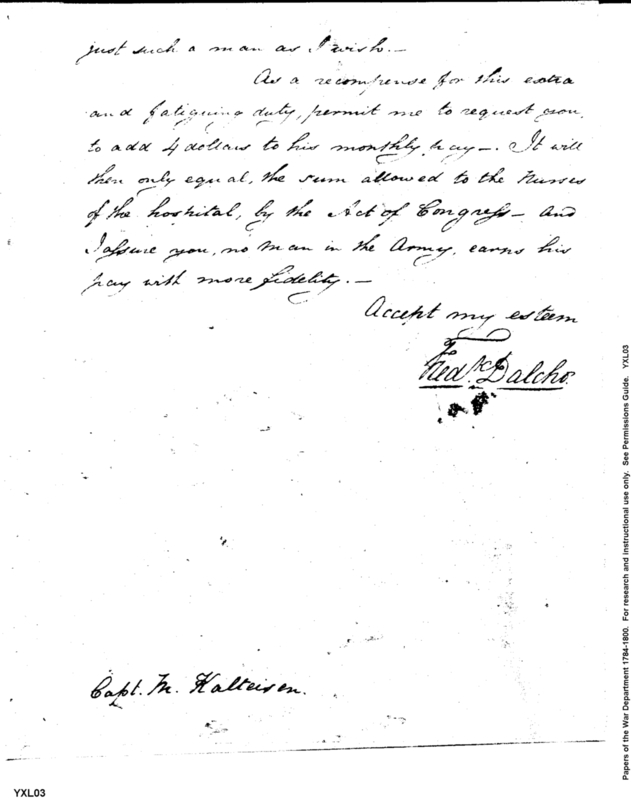 just such a man as I wish.—
As a recompense for this extra
and fatiguing duty, permit me to request you,
to add 4 dollars to his monthly pay—. It will
then only equal, the sum allowed to the Nurses
of the hospital, by the Act of Congress— and
I assure you, no man in the Army, earns his
pay with more fidelity.—
Accept my esteem
Fredk Dalcho.
Capt. M. Kalteisen.
YXL03
Papers of the War Department 1784-1800. For research and instructional use only. See Permissions Guide. YXL03